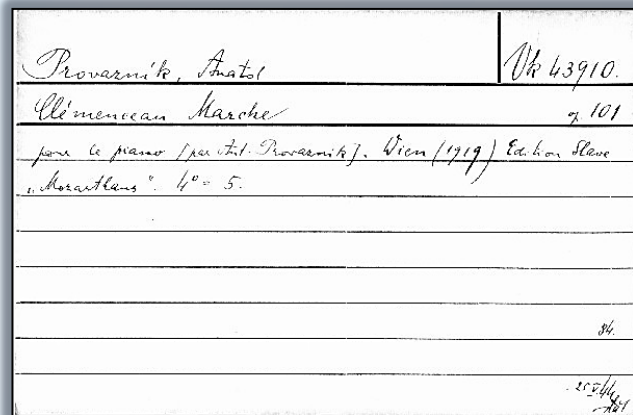 Provazník, Anatol Vk 43910.
Clémenceau Marche op. 101
pour le piano [par Ant. Provaznik]. Wien (1919) Edition Slave
„Mozarthaus“. 4° = 5.
84.
25 V 44